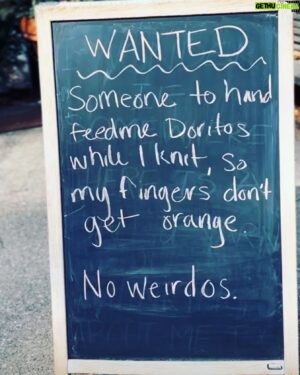 GETHU CINEMA
WANTED
Someone to hand
feed me Doritos
while I knit, so
my fingers don't
get orange.
No weirdos.